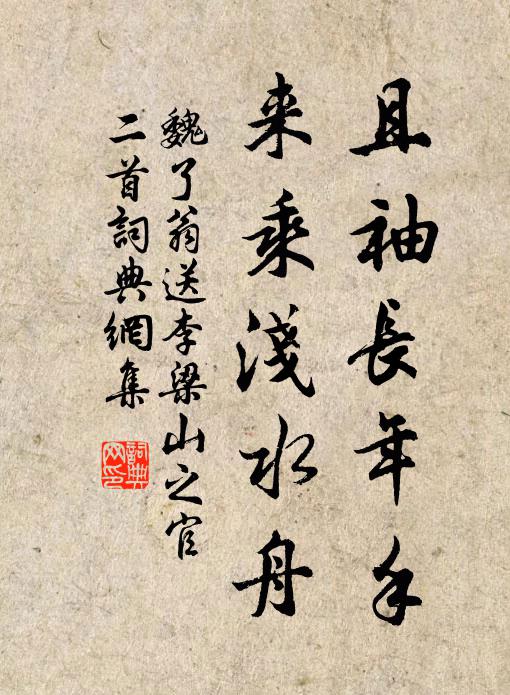 且袖長年手
来乘淺水舟
魏了翁送李梁山之官
二首詞典網集
詞典網印